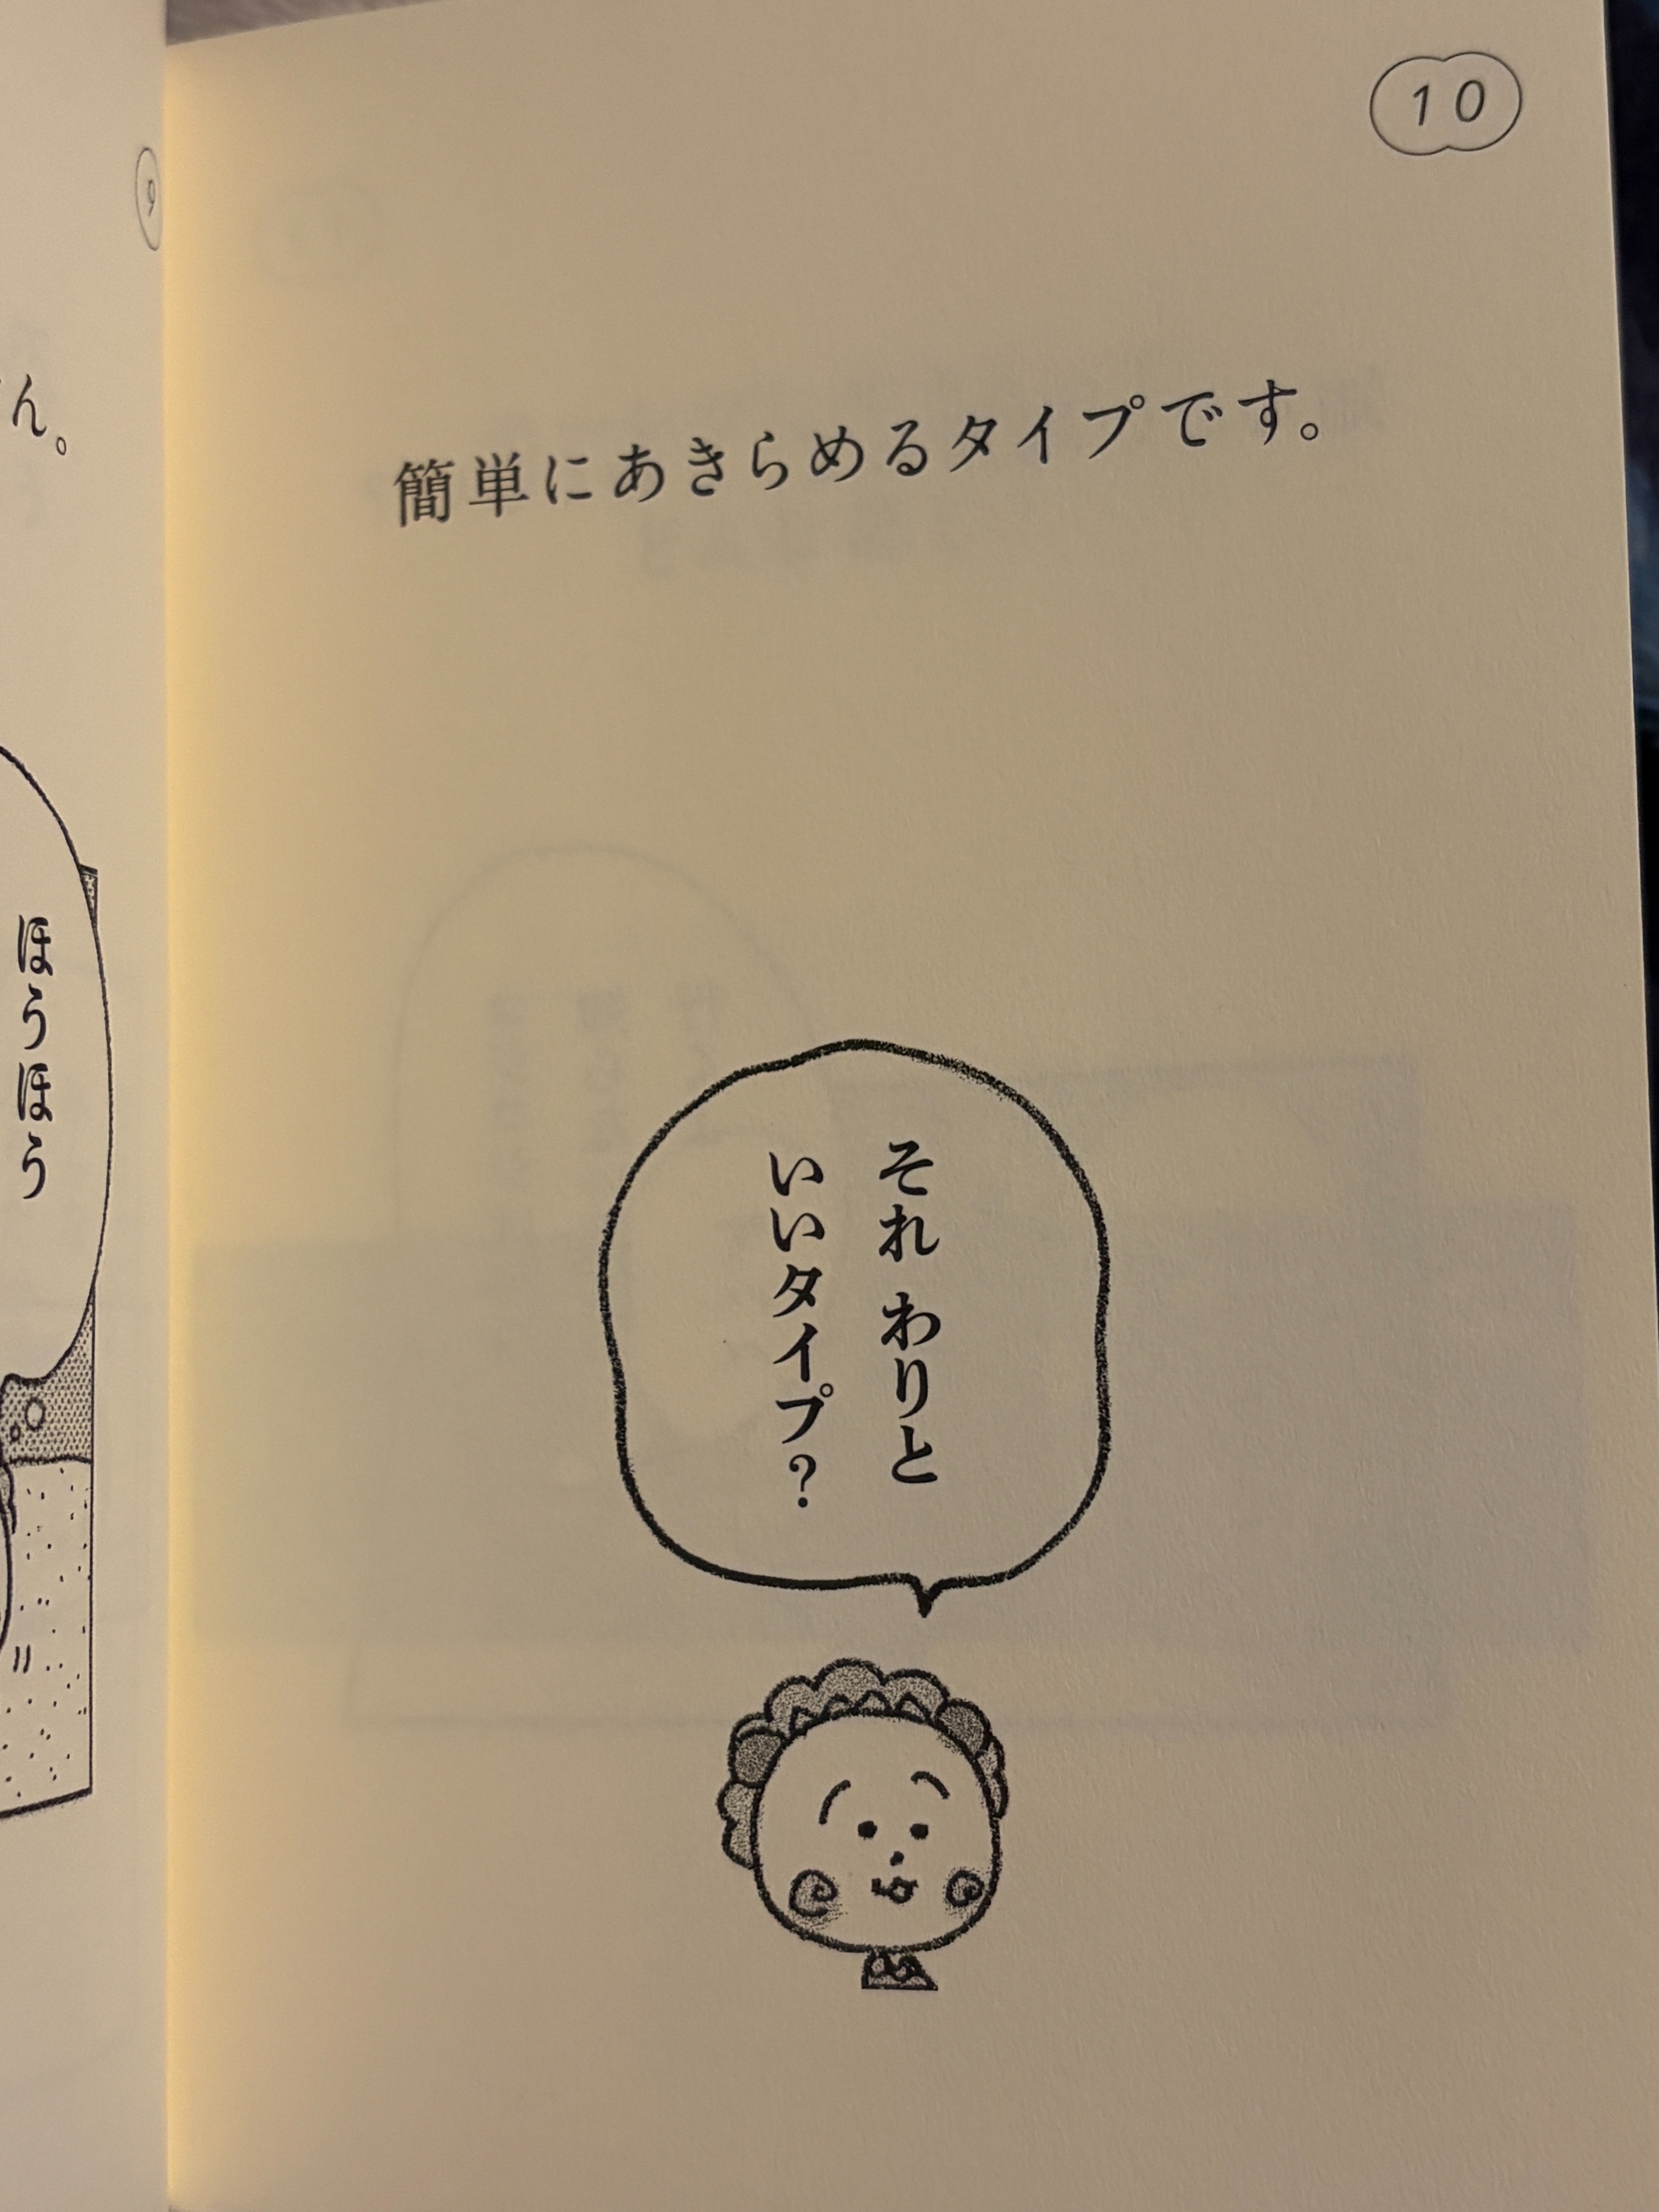 10
簡単にあきらめるタイプです。
それ わりと
いいタイプ？
9
ん。
ほうほう